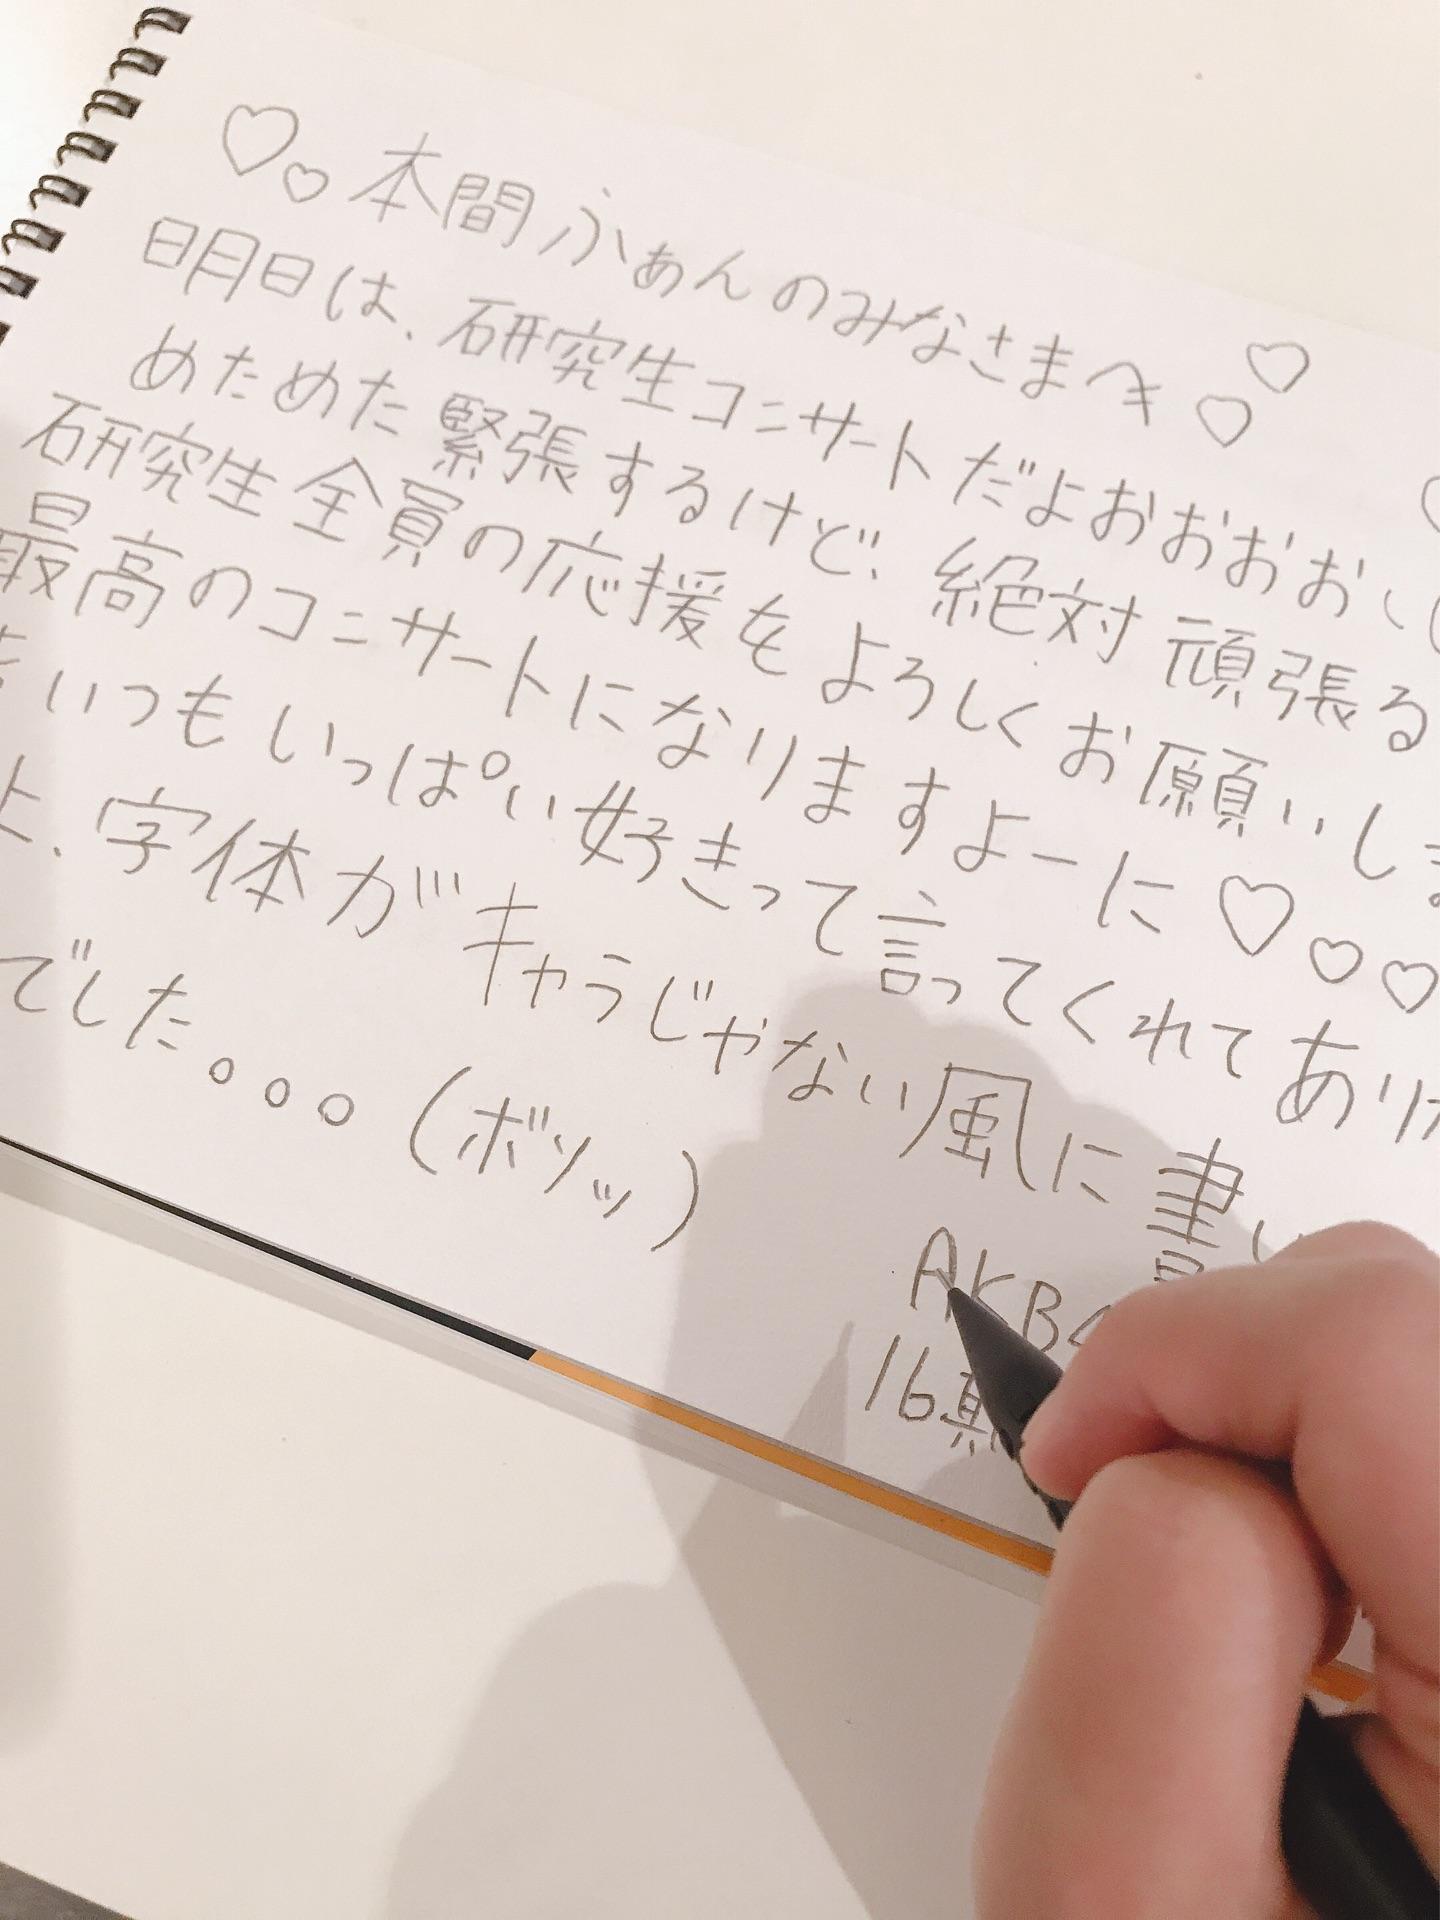 ♡♡本間ふぁんのみなさまへ♡♡
明日は、研究生コンサートだよおおおおい
めためた緊張するけど、絶対頑張る
研究生全員の応援をよろしくお願いしま
最高のコンサートになりますよーに♡♡♡
いつもいっぱい好きって言ってくれてあり
上、字体がギャラじゃない風に書い
でした。。。(ボソッ)
AKB4
16期